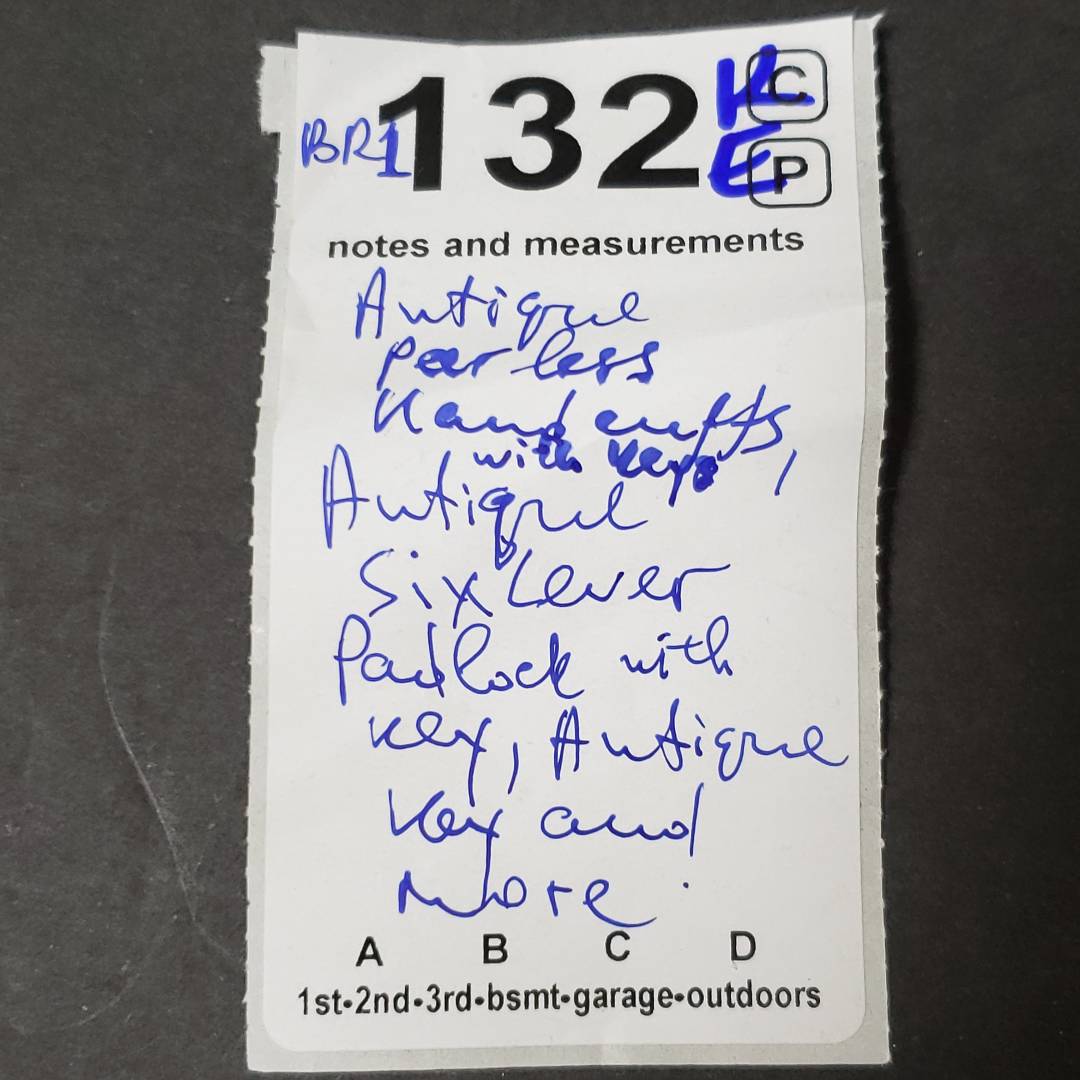 BR1 132 K C
E P
notes and measurements
Antique
Peerless
Handcuffs,
with keys
Antique
Six Lever
Padlock with
key, Antique
key and
more.
A B C D
1st•2nd•3rd•bsmt•garage•outdoors